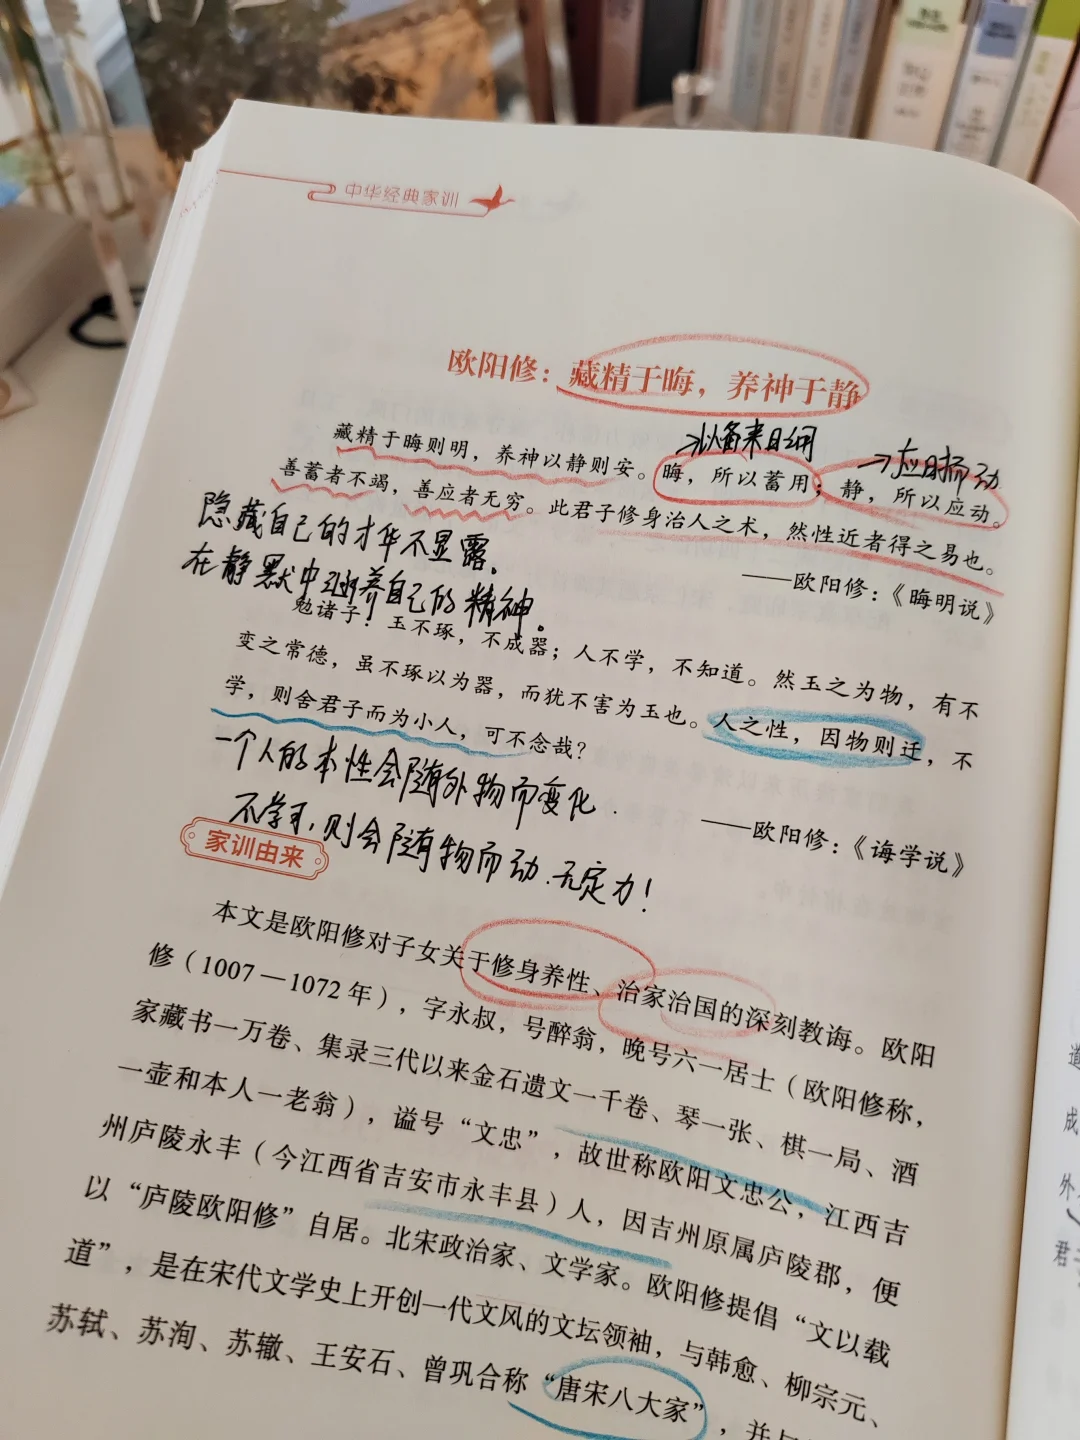 中华经典家训
欧阳修：藏精于晦，养神于静
→以备来日之用
→应时而动
藏精于晦则明，养神以静则安。晦，所以蓄用；静，所以应动。
善蓄者不竭，善应者无穷。此君子修身治人之术，然性近者得之易也。
——欧阳修：《晦明说》
隐藏自己的才华不显露。
在静默中涵养自己的精神。
勉诸子！玉不琢，不成器；人不学，不知道。然玉之为物，有不
变之常德，虽不琢以为器，而犹不害为玉也。人之性，因物则迁，不
学，则舍君子而为小人，可不念哉？
——欧阳修：《诲学说》
一个人的本性会随外物而变化.
不学习，则会随物而动.无定力！
家训由来
本文是欧阳修对子女关于修身养性、治家治国的深刻教诲。欧阳
修（1007—1072年），字永叔，号醉翁，晚号六一居士（欧阳修称，
家藏书一万卷、集录三代以来金石遗文一千卷、琴一张、棋一局、酒
一壶和本人一老翁），谥号“文忠”，故世称欧阳文忠公，江西吉
州庐陵永丰（今江西省吉安市永丰县）人，因吉州原属庐陵郡，便
以“庐陵欧阳修”自居。北宋政治家、文学家。欧阳修提倡“文以载
道”，是在宋代文学史上开创一代文风的文坛领袖，与韩愈、柳宗元、
苏轼、苏洵、苏辙、王安石、曾巩合称“唐宋八大家”，并与
道
成
外
君子